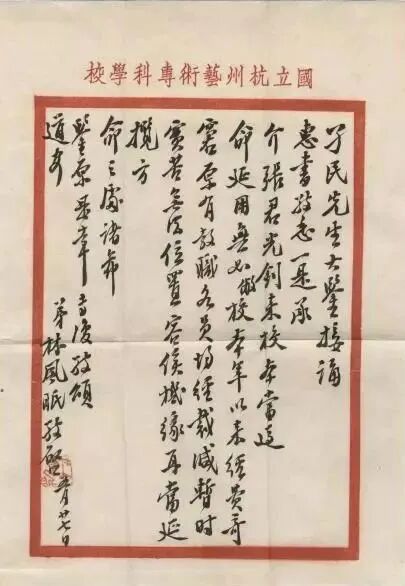 國立杭州藝術專科學校
孑民先生大鑒接誦
惠書敬悉一是承
介張君光釗來校本當遵
命延用無如敝校本年以來經費奇
窘原有教職各員均經裁減暫時
實苦無法位置容俟機緣再當延
攬方
命之處諸希
鑒原是幸專復敬頌
道安
弟林風眠敬啓
月廿七日